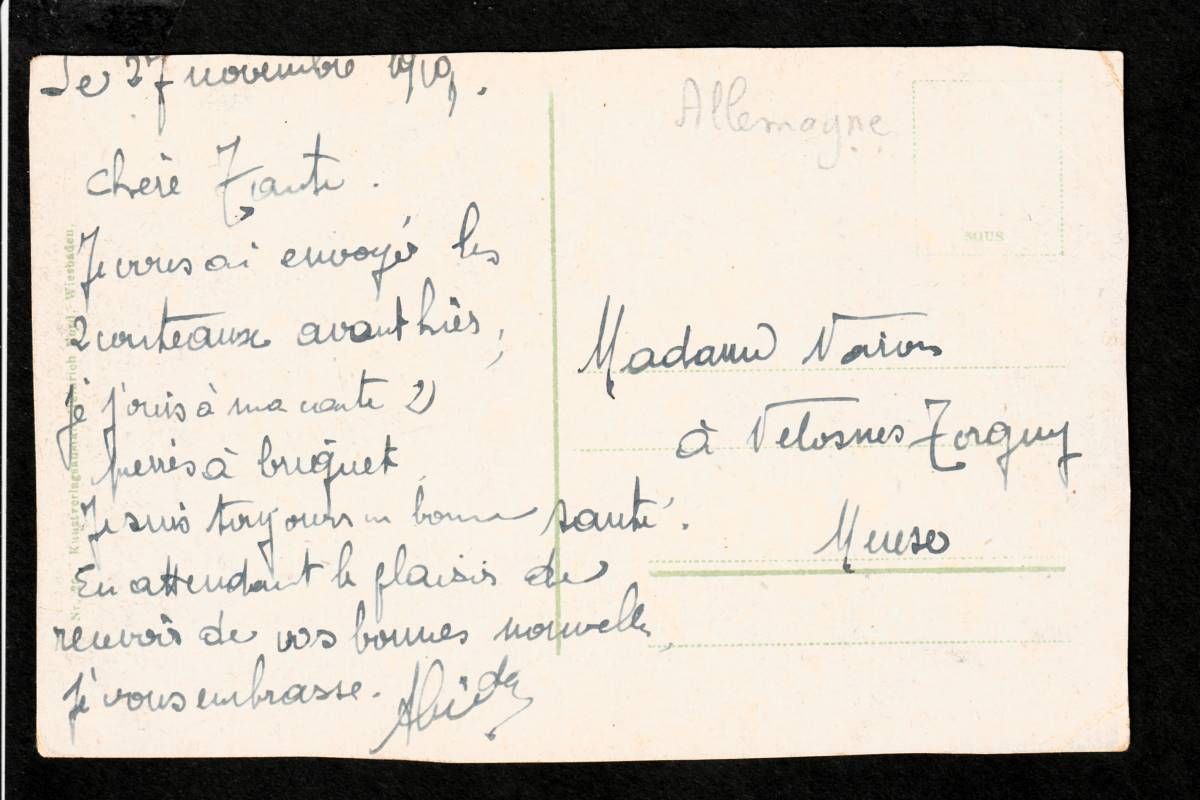 Le 27 novembre 1919.
chère Tante.
Je vous ai envoyér les
2 couteaux avant hiès,
je j'ouis à ma carte 2
pierrès à briquet
Je suis toujours en bonne santé.
En attendant le plaisir de
recevoir de vos bonnes nouvelles,
je vous embrasse.
Allemagne
SOUS
Madame
à Velosnes Torgny
Meuse
Wiesbaden.